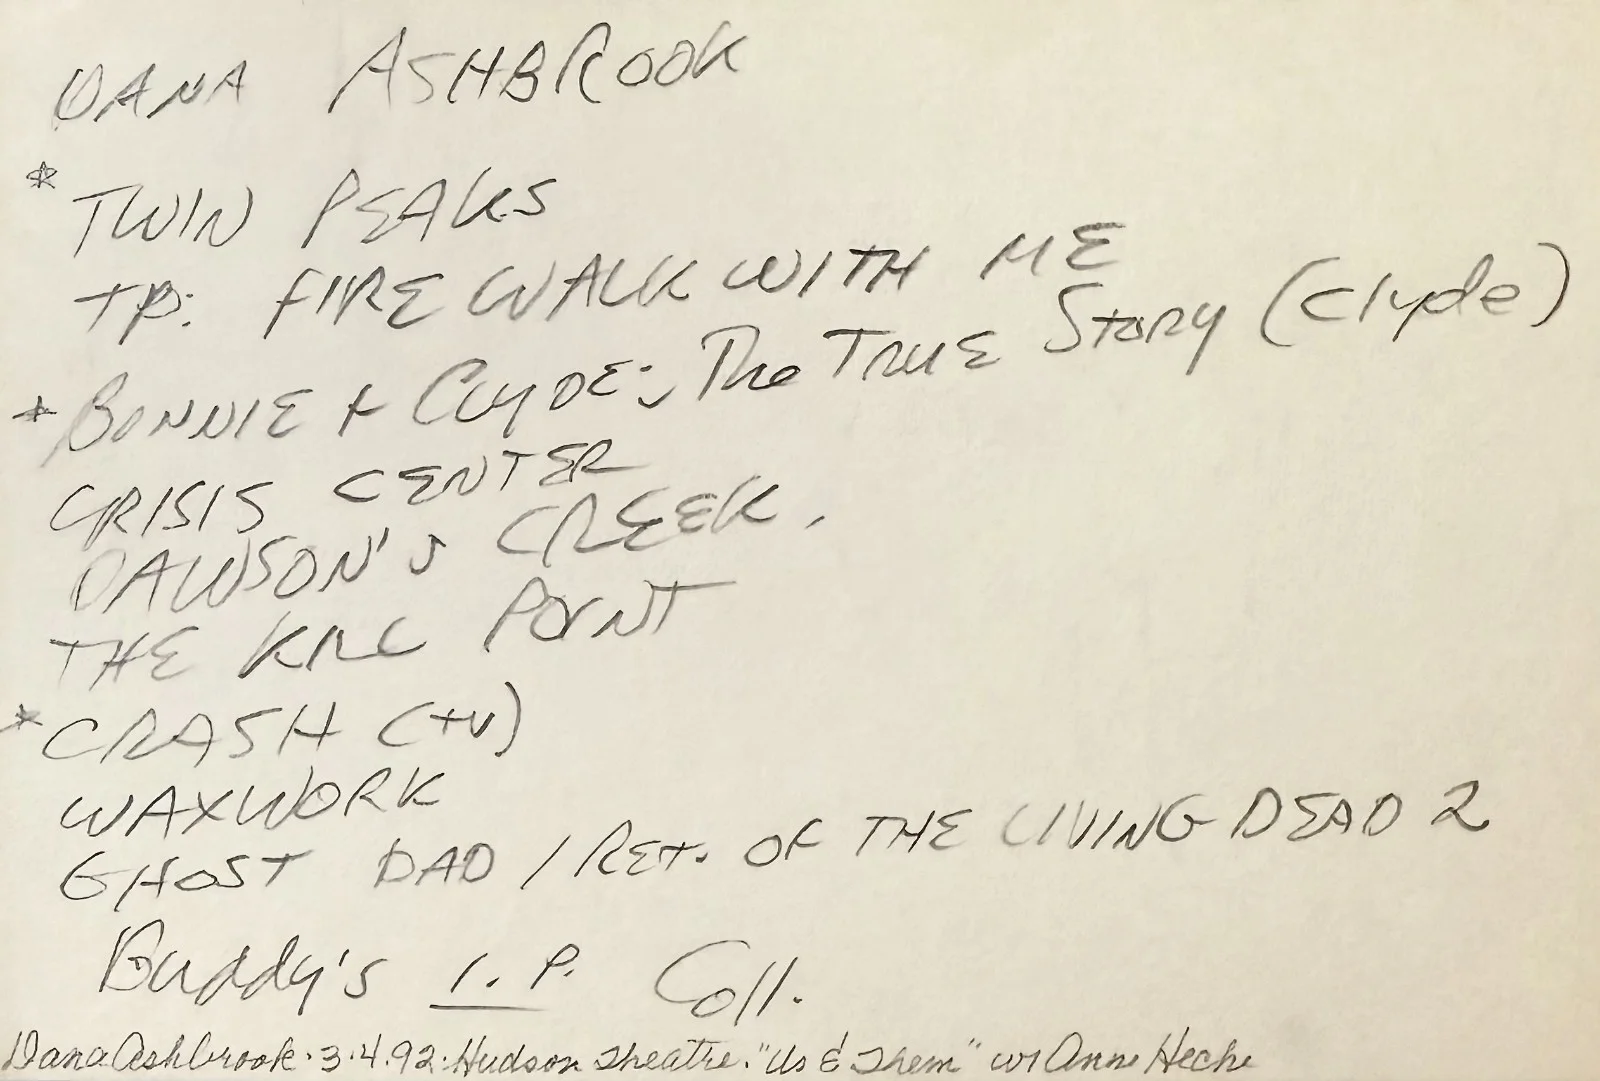 DANA ASHBROOK
* TWIN PEAKS
TP: FIRE WALK WITH ME
* BONNIE + CLYDE: The TRUE Story (Clyde)
CRISIS CENTER
DAWSON'S CREEK.
THE KILL POINT
* CRASH (tv)
WAXWORK
GHOST DAD / RET. OF THE LIVING DEAD 2
Buddy's I. P. Coll.
Dana Ashbrook · 3·4·92· Hudson Theatre · "Us & Them" w/ Anne Heche